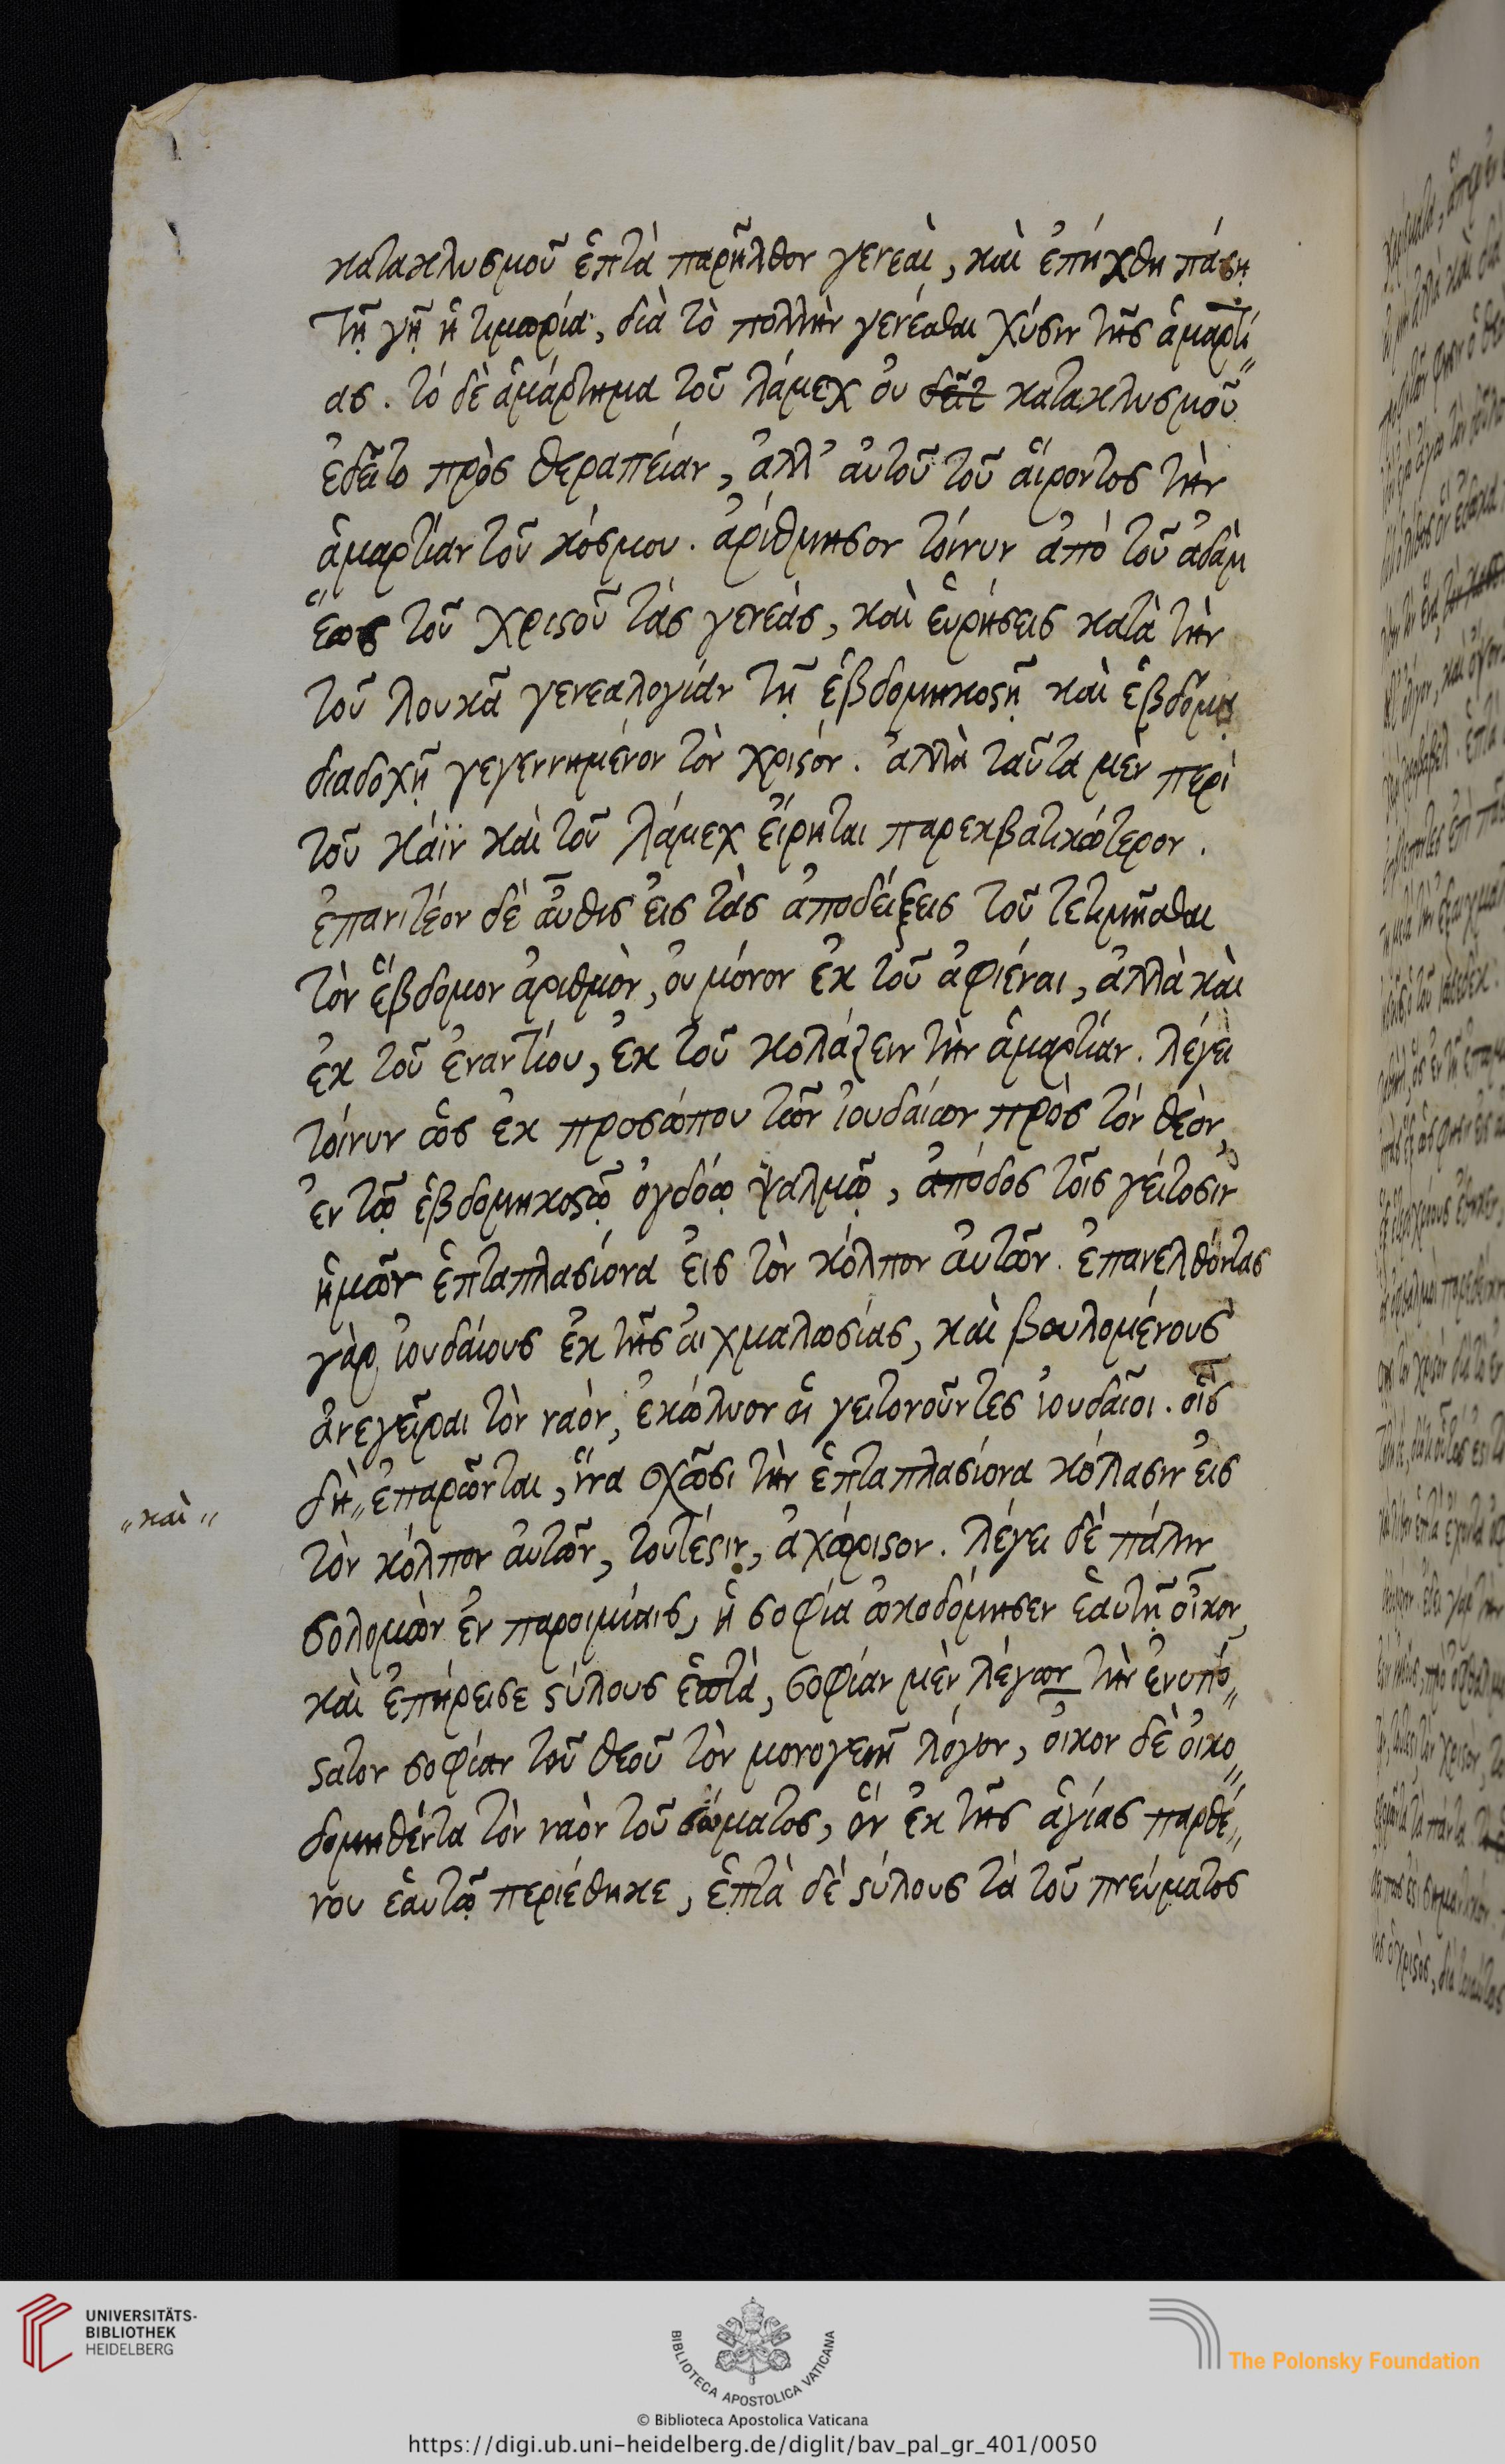 κατακλυσμοῦ ἑπτὰ παρῆλθον γενεαὶ, καὶ ἐπήχθη πάσῃ
τῇ γῇ ἡ τιμωρία, διὰ τὸ πολλὴν γενέσθαι χύσιν τῆς ἁμαρτί„
ας. τὸ δὲ ἁμάρτημα τοῦ λάμεχ οὐ κατακλυσμοῦ
ἐδεῖτο πρὸς θεραπείαν, ἀλλ' αὐτοῦ τοῦ αἴροντος τὴν
ἁμαρτίαν τοῦ κόσμου. ἀρίθμησον τοίνυν ἀπὸ τοῦ ἀδὰμ
ἕως τοῦ χριστοῦ τὰς γενεάς, καὶ εὑρήσεις κατὰ τὴν
τοῦ λουκᾶ γενεαλογίαν τῇ ἑβδομηκοστῇ καὶ ἑβδόμῃ
διαδοχῇ γεγεννημένον τὸν χριστόν. ἀλλὰ ταῦτα μὲν περὶ
τοῦ κάϊν καὶ τοῦ λάμεχ εἴρηται παρεκβατικώτερον.
ἐπανιτέον δὲ αὖθις εἰς τὰς ἀποδείξεις τοῦ τετιμῆσθαι
τὸν ἕβδομον ἀριθμὸν, οὐ μόνον ἐκ τοῦ ἀφιέναι, ἀλλὰ καὶ
ἐκ τοῦ ἐναντίου, ἐκ τοῦ κολάζειν τὴν ἁμαρτίαν. λέγει
τοίνυν ὡς ἐκ προσώπου τῶν ἰουδαίων πρὸς τὸν θεὸν,
ἐν τῷ ἑβδομηκοστῷ ὀγδόῳ ψαλμῷ, ἀπόδος τοῖς γείτοσιν
ἡμῶν ἑπταπλασίονα εἰς τὸν κόλπον αὐτῶν. ἐπανελθόντας
γὰρ ἰουδαίους ἐκ τῆς αἰχμαλωσίας, καὶ βουλομένους
ἀνεγεῖραι τὸν ναὸν, ἐκώλυον οἱ γειτονοῦντες ἰουδαῖοι. οἷς
δὴ „ ἐπαρῶνται, ἵνα σχῶσι τὴν ἑπταπλασίονα κόλασιν εἰς
„ καὶ „
τὸν κόλπον αὐτῶν, τουτέστιν, ἀχώριστον. λέγει δὲ πάλιν
σολομὼν ἐν παροιμίαις, ἡ σοφία ᾠκοδόμησεν ἑαυτῇ οἶκον,
καὶ ἐπήρεισε στύλους ἑπτὰ, σοφίαν μὲν λέγων τὴν ἐνυπό„
στατον σοφίαν τοῦ θεοῦ τὸν μονογενῆ λόγον, οἶκον δὲ οἰκο„
δομηθέντα τὸν ναὸν τοῦ σώματος, ὃν ἐκ τῆς ἁγίας παρθέ„
νου ἑαυτῷ περιέθηκε, ἑπτὰ δὲ στύλους τὰ τοῦ πνεύματος
UNIVERSITÄTS-
BIBLIOTHEK
HEIDELBERG
BIBLIOTECA APOSTOLICA VATICANA
The Polonsky Foundation
© Biblioteca Apostolica Vaticana
https://digi.ub.uni-heidelberg.de/diglit/bav_pal_gr_401/0050